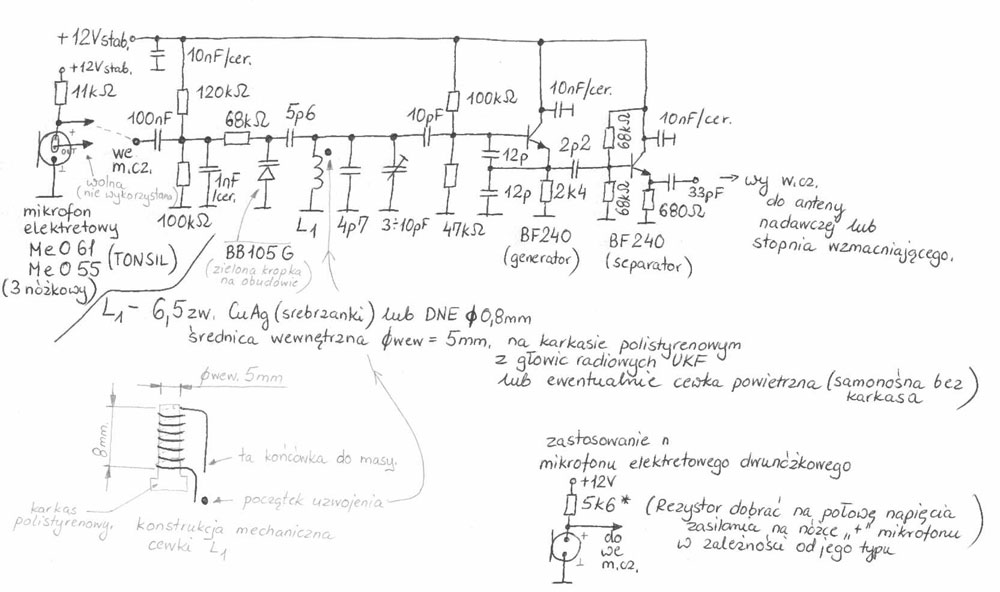 +12Vstab.
+12Vstab.
10nF/cer.
11kΩ
120kΩ
100kΩ
10nF/cer.
10nF/cer.
100nF
68kΩ
5p6
10pF
we
m.cz.
+
OUT
⊥
wolna
(nie wykorzystana)
1nF
/cer.
100kΩ
12p
12p
2p2
2k4
68kΩ
68kΩ
33pF
680Ω
→ wy w.cz.
do anteny
nadawczej lub
stopnia wzmacniającego.
mikrofon
elektretowy
MeO 61
MeO 55 (TONSIL)
(3 nóżkowy)
BB105G
(zielona kropka
na obudowie)
L1
4p7
3÷10pF
47kΩ
BF240
(generator)
BF240
(separator)
L1 - 6,5 zw. CuAg (srebrzanki) lub DNE ϕ0,8mm
średnica wewnętrzna ϕwew = 5mm, na karkasie polistyrenowym
z głowic radiowych UKF
lub ewentualnie cewka powietrzna (samonośna bez
karkasa)
ϕwew. 5mm
8mm.
ta końcówka do masy.
początek uzwojenia
karkas
polistyrenowy.
konstrukcja mechaniczna
cewki L1
zastosowanie n
mikrofonu elektretowego dwunóżkowego
+12V
5k6* (Rezystor dobrać na połowę napięcia
zasilania na nóżce „+" mikrofonu
w zależności od jego typu)
+
⊥
do
we
m.cz.